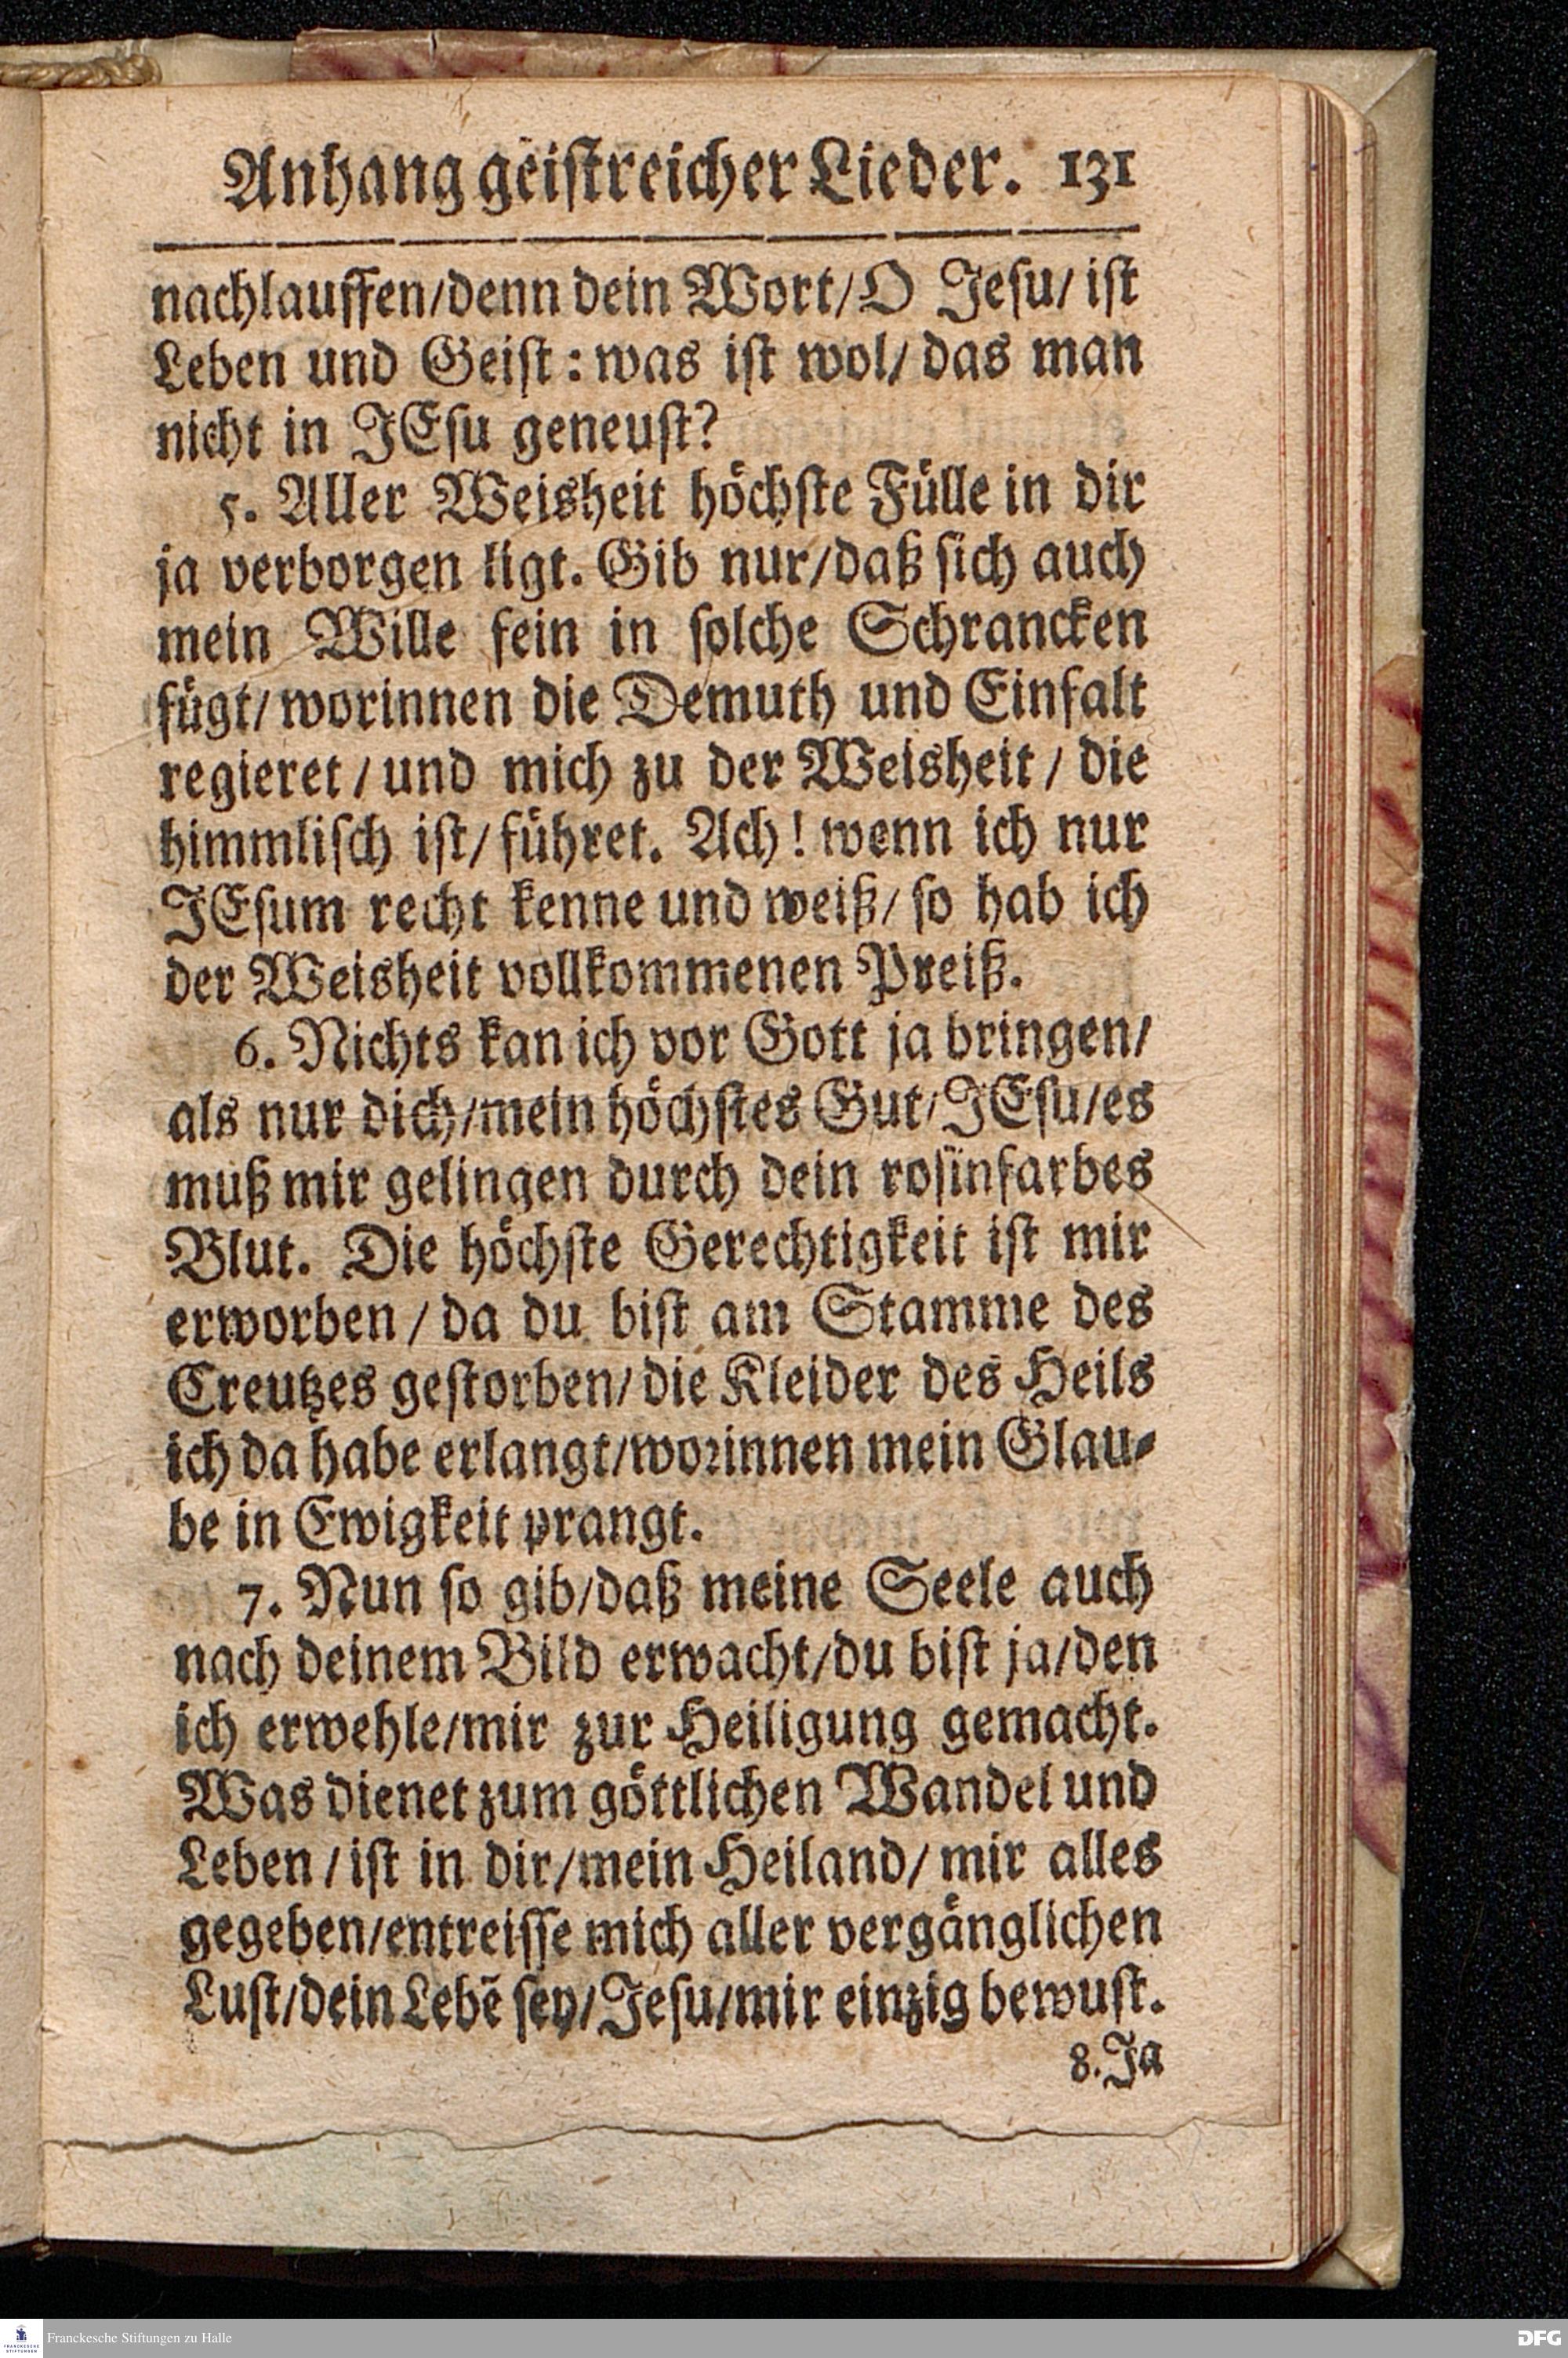 Anhang geistreicher Lieder. 131
nachlauffen/denn dein Wort/O Jesu/ ist
Leben und Geist: was ist wol/ das man
nicht in JEsu geneust?
5. Aller Weisheit höchste Fülle in dir
ja verborgen ligt. Gib nur/daß sich auch
mein Wille fein in solche Schrancken
fügt/ worinnen die Demuth und Einfalt
regieret / und mich zu der Weisheit / die
himmlisch ist/ führet. Ach! wenn ich nur
JEsum recht kenne und weiß/ so hab ich
der Weisheit vollkommenen Preiß.
6. Nichts kan ich vor Gott ja bringen/
als nur dich/mein höchstes Gut/JEsu/es
muß mir gelingen durch dein rosinfarbes
Blut. Die höchste Gerechtigkeit ist mir
erworben / da du bist am Stamme des
Creutzes gestorben/ die Kleider des Heils
ich da habe erlangt/worinnen mein Glau-
be in Ewigkeit prangt.
7. Nun so gib/daß meine Seele auch
nach deinem Bild erwacht/du bist ja/den
ich erwehle/mir zur Heiligung gemacht.
Was dienet zum göttlichen Wandel und
Leben / ist in dir/mein Heiland/ mir alles
gegeben/entreisse mich aller vergänglichen
Lust/dein Lebē sey/Jesu/mir einzig bewust.
8. Ja
Franckesche Stiftungen zu Halle
DFG